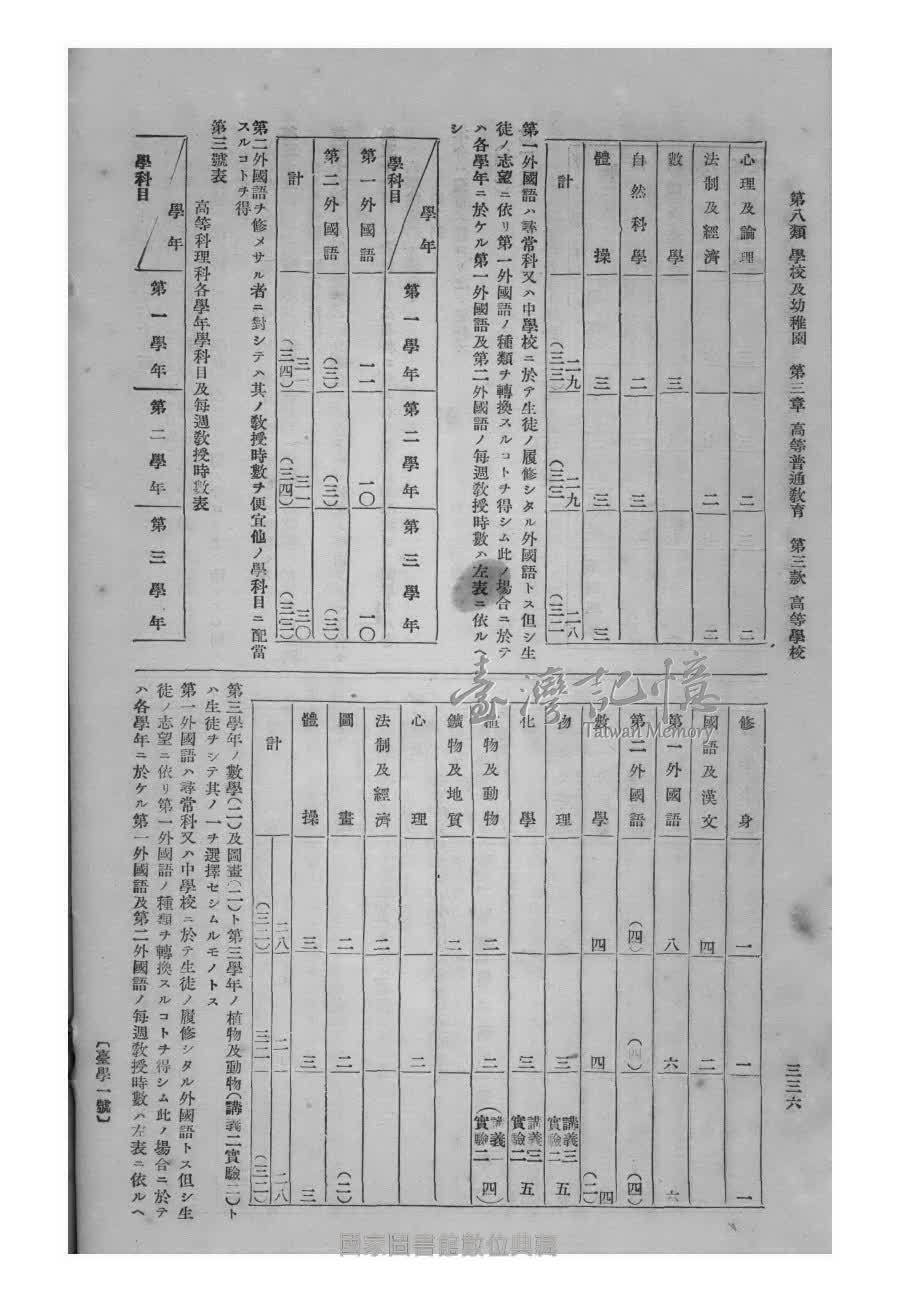 第八類 學校及幼稚園 第三章 高等普通教育 第三款 高等學校
三三六
心理及論理 二 二
法制及經濟 二 二
數學 三
自然科學 二 三
體操 三 三 三
計 二九(三三) 二九(三三) 二八(三二)
第一外國語ハ尋常科又ハ中學校ニ於テ生徒ノ履修シタル外國語トス但シ生
徒ノ志望ニ依リ第一外國語ノ種類ヲ轉換スルコトヲ得シム此ノ場合ニ於テ
ハ各學年ニ於ケル第一外國語及第二外國語ノ每週教授時數ハ左表ニ依ルヘ
シ
學科目 學年 第一學年 第二學年 第三學年
第一外國語 一一 一〇 一〇
第二外國語 (三) (三) (三)
計 三一(三四) 三一(三四) 三〇(三三)
第二外國語ヲ修メサル者ニ對シテハ其ノ教授時數ヲ便宜他ノ學科目ニ配當
スルコトヲ得
第三號表
高等科理科各學年學科目及每週教授時數表
學科目 學年 第一學年 第二學年 第三學年
修身 一 一 一
國語及漢文 四 二
第一外國語 八 六 六
第二外國語 (四) (四) (四)
數學 四 四 四(二)
物理 三 講義三實驗二 五
化學 三 講義三實驗二 五
植物及動物 二 二 (講義二實驗二 四)
鑛物及地質 二
心理 二
法制及經濟 二
圖畫 二 二 (二)
體操 三 三 三
計 二八(三二) 二八(三二)
第三學年ノ數學(二)及圖畫(二)ト第三學年ノ植物及動物(講義二實驗二)ト
ハ生徒ヲシテ其ノ一ヲ選擇セシムルモノトス
第一外國語ハ尋常科又ハ中學校ニ於テ生徒ノ履修シタル外國語トス但シ生
徒ノ志望ニ依リ第一外國語ノ種類ヲ轉換スルコトヲ得シム此ノ場合ニ於テ
ハ各學年ニ於ケル第一外國語及第二外國語ノ每週教授時數ハ左表ニ依ルヘ
〔臺學一號〕
臺灣記憶
Taiwan Memory
國家圖書館數位典藏